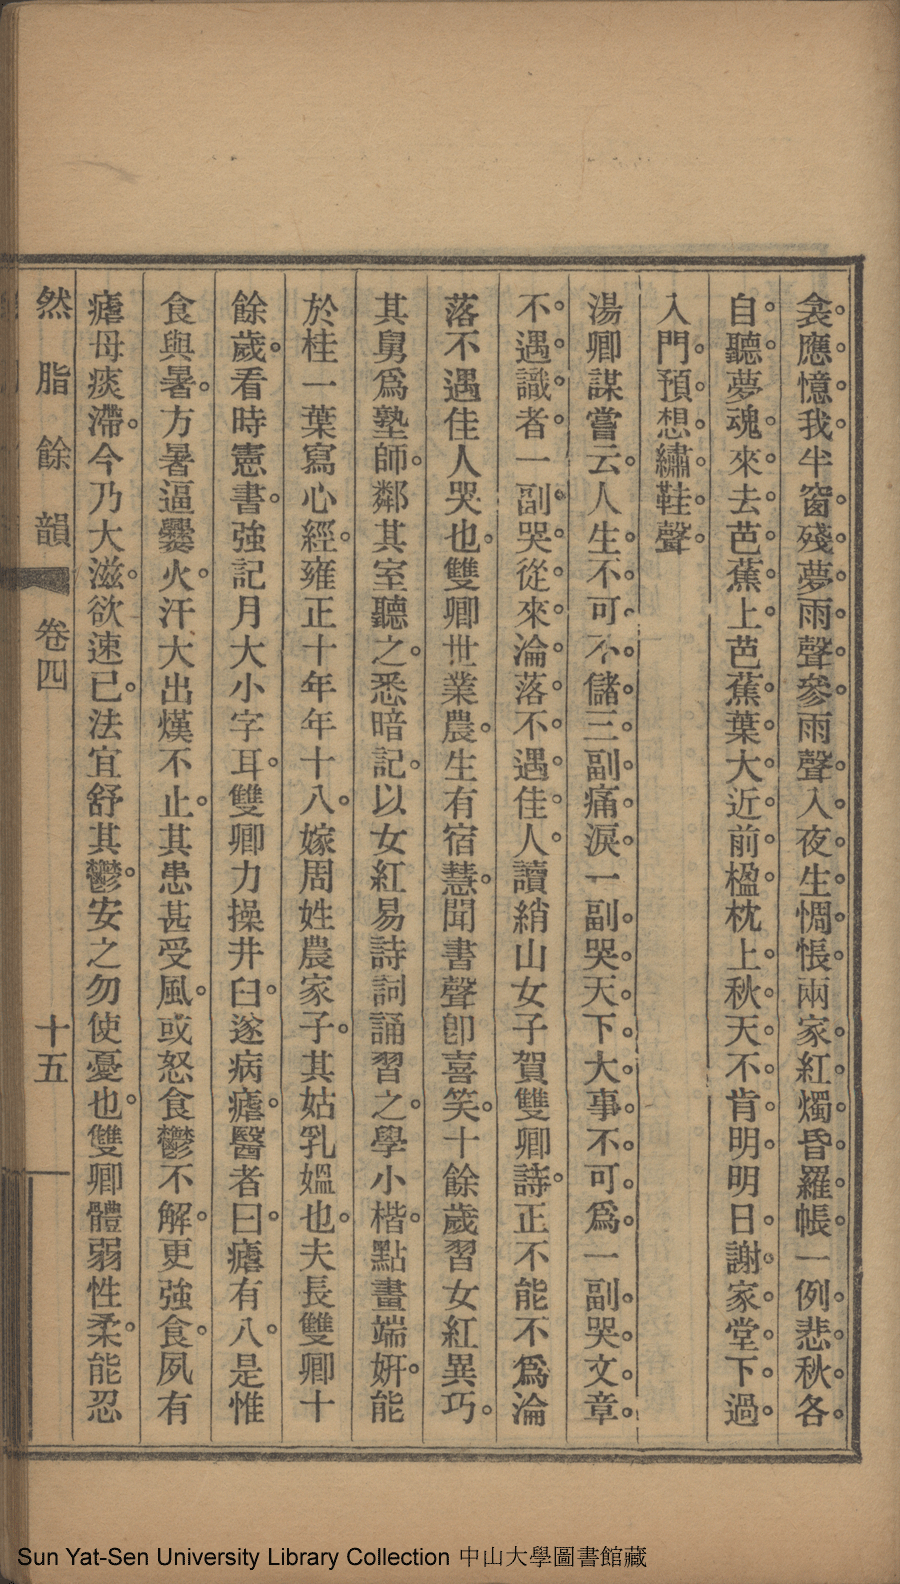 衾應憶我半窗殘夢雨聲參雨聲入夜生惆悵兩家紅燭昏羅帳一例悲秋各
自聽夢魂來去芭蕉上芭蕉葉大近前楹枕上秋天不肯明明日謝家堂下過
入門預想繡鞋聲
湯卿謀嘗云人生不可不儲三副痛淚一副哭天下大事不可爲一副哭文章
不遇識者一副哭從來淪落不遇佳人讀綃山女子賀雙卿詩正不能不爲淪
落不遇佳人哭也雙卿世業農生有宿慧聞書聲卽喜笑十餘歲習女紅異巧
其舅爲塾師鄰其室聽之悉暗記以女紅易詩詞誦習之學小楷點畫端妍能
於桂一葉寫心經雍正十年年十八嫁周姓農家子其姑乳媼也夫長雙卿十
餘歲看時憲書強記月大小字耳雙卿力操井臼遂病瘧醫者曰瘧有八是惟
食與暑方暑逼爨火汗大出熯不止其患甚受風或怒食鬱不解更強食夙有
瘧母痰滯今乃大滋欲速已法宜舒其鬱安之勿使憂也雙卿體弱性柔能忍
然脂餘韻 卷四 十五
Sun Yat-Sen University Library Collection 中山大學圖書館藏